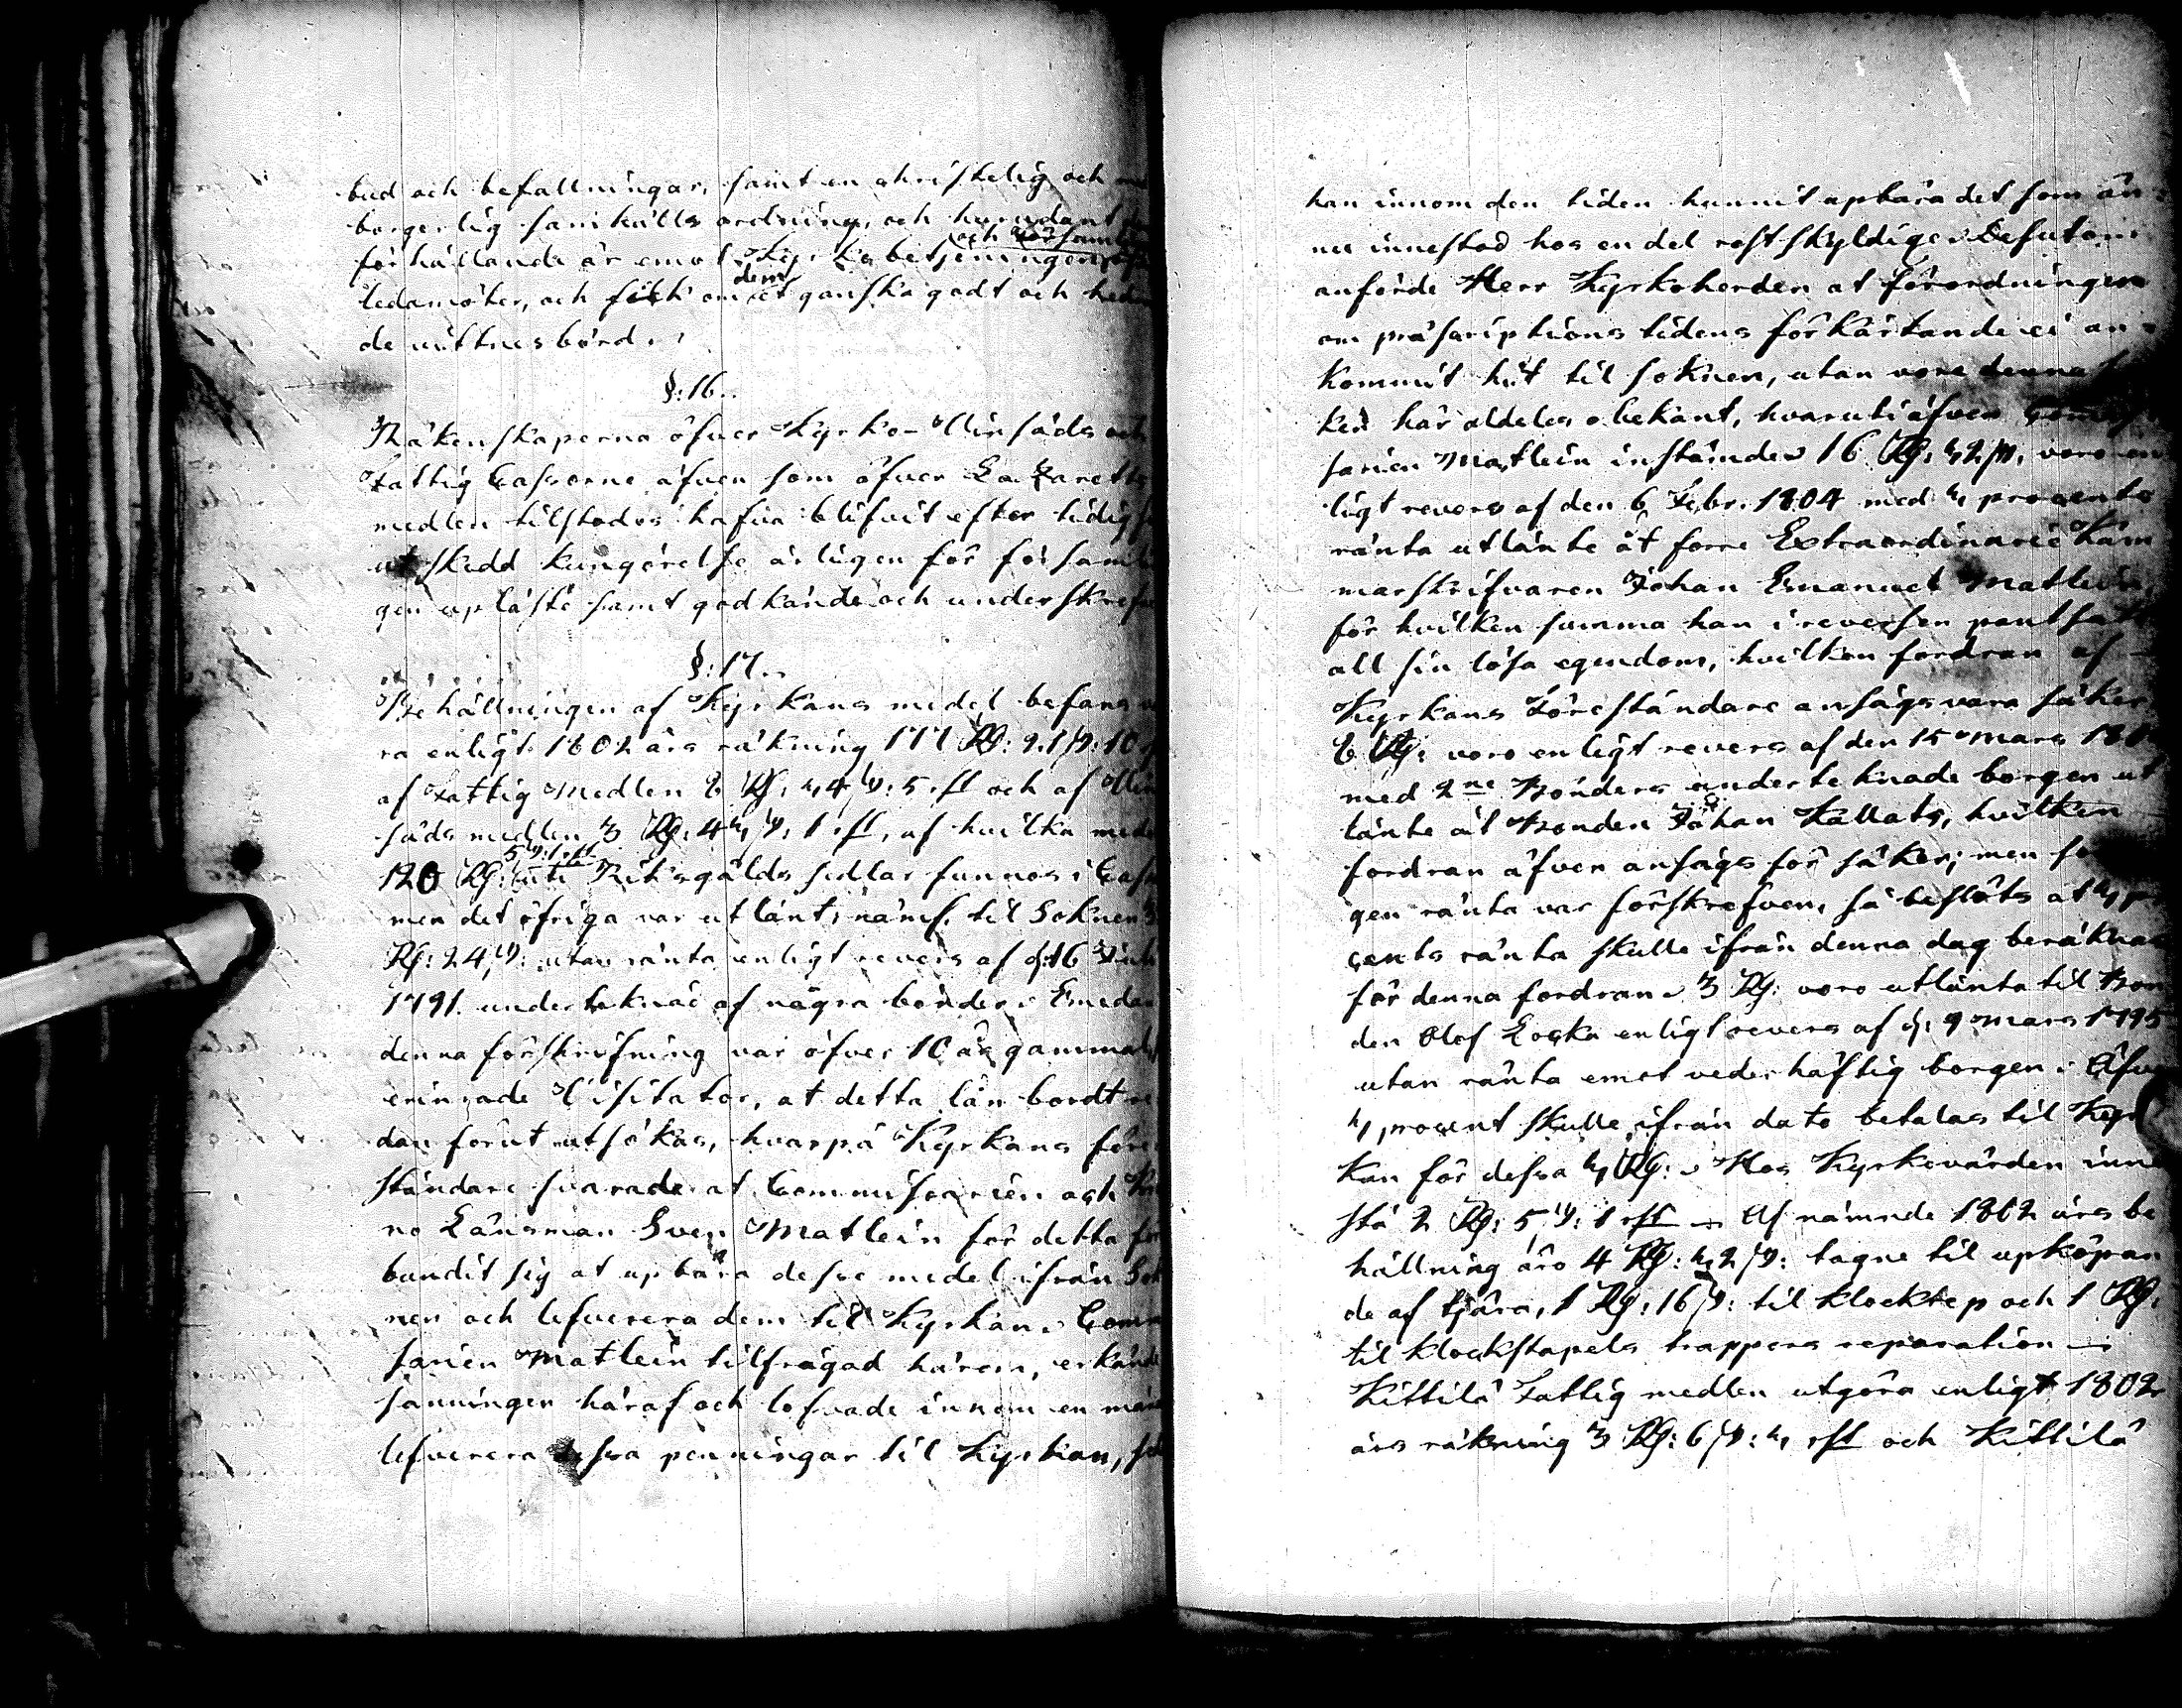 bud och befallningar, samt en christelig och
borgerlig samhälls ordning, och hurudant
och
förhållande är emot Kyrko betjeningen
dem
ledamöter, och fick om et ganska godt och
de vittnesbörd.
§: 16.
Räkenskaperna öfver Kyrko- Vinsäds och
Fattig Casserne äfven som öfver Lazaretts
medlen tilstodos hafva blifvit efter tidig
ut skedd kungörelse årligen för församl
gen upläste samt godkände och underskrefne
§: 17.
Behållningen af Kyrkans medel befans va
ra enligt 1802 års räkning 177 Rd: 21 ß: 10
af Fattig Medlen 8 Rd: 44 ß: 5 rst och af Vin
säds medlen 3 Rd: 44 ß: 1 rst, af hvilka med
5 ß: 1 rst
120 Rd: uti Riksgälds sedlar funnos i Cass
men det öfriga var utlånt, nämt. til Soknen 3
Rd: 24 ß: utan ränta enligt revers af d: 16
1791. undertecknad af några bönder. Emedan
denna förskrifning var öfver 10 år gammal,
erinrade Visitator, at detta lån bordt re
dan förut utsökas, hvarpå Kyrkans före
ståndare svarade at Commissarien och Kro
no Länsman Sven Matlein för detta för
bundit sig at upbära desse medel ifrån Sok
nen och lefverera dem til Kyrkan. Commi
sarien Matlein tilfrågad härom, erkände
sanningen häraf och lofvade innom en mån
lefverera dessa penningar til Kyrkan, sed
han innom den tiden hunnit upbära det som än
nu innestod hos en del rest skyldige. Desutom
anförde Herr Kyrkoherden at förordningen
om præscriptions tidens förkårtande ei an
kommit hit til soknen, utan vore denna
ken här aldeles obekant, hvaruti äfven Commis
sarien Matlein instämde. 16 Rd: 32 ß, voro en
ligt revers af den 6 Febr. 1804 med 4 procents
ränta utlånte åt forre Extraordinarie Kam
marskrifvaren Johan Emanuel Matlein,
för hvilken summa han i reversen pantsatt
all sin lösa egendom, hvilken fordran af
Kyrkans Föreståndare ansågs vara säker
6 Rd: voro enligt revers af den 15 Mars 180
med 2ne Bönders underteknade borgen ut
lånte åt Bonden Johan Kallats, hvilken
fordran äfven ansågs för säker; men
gen ränta var förskrefven, så beslöts at 4 pr
cents ränta skulle ifrån denna dag beräknas
för denna fordran. 3 Rd: voro utlånta til Bon
den Olof Locka enligt revers af d: 9 Mars 1795
utan ränta emot vederhäftig borgen. Äfven
4 procent skulle ifrån dato betalas til Kyr
kan för dessa 4 Rd: Hos Kyrkovärden inne
stå 2 Rd: 5 ß: 1 rst. Af nämnde 1802 års be
hållning äro 4 Rd: 42 ß: tagne til upköpan
de af tjära, 1 Rd: 16 ß: til klockrep och 1 Rd:
til klockstapels trappers reparation
Kittilä Fattig medlen utgöra enligt 1802
års räkning 3 Rd: 6 ß: 4 rst och Kittilä